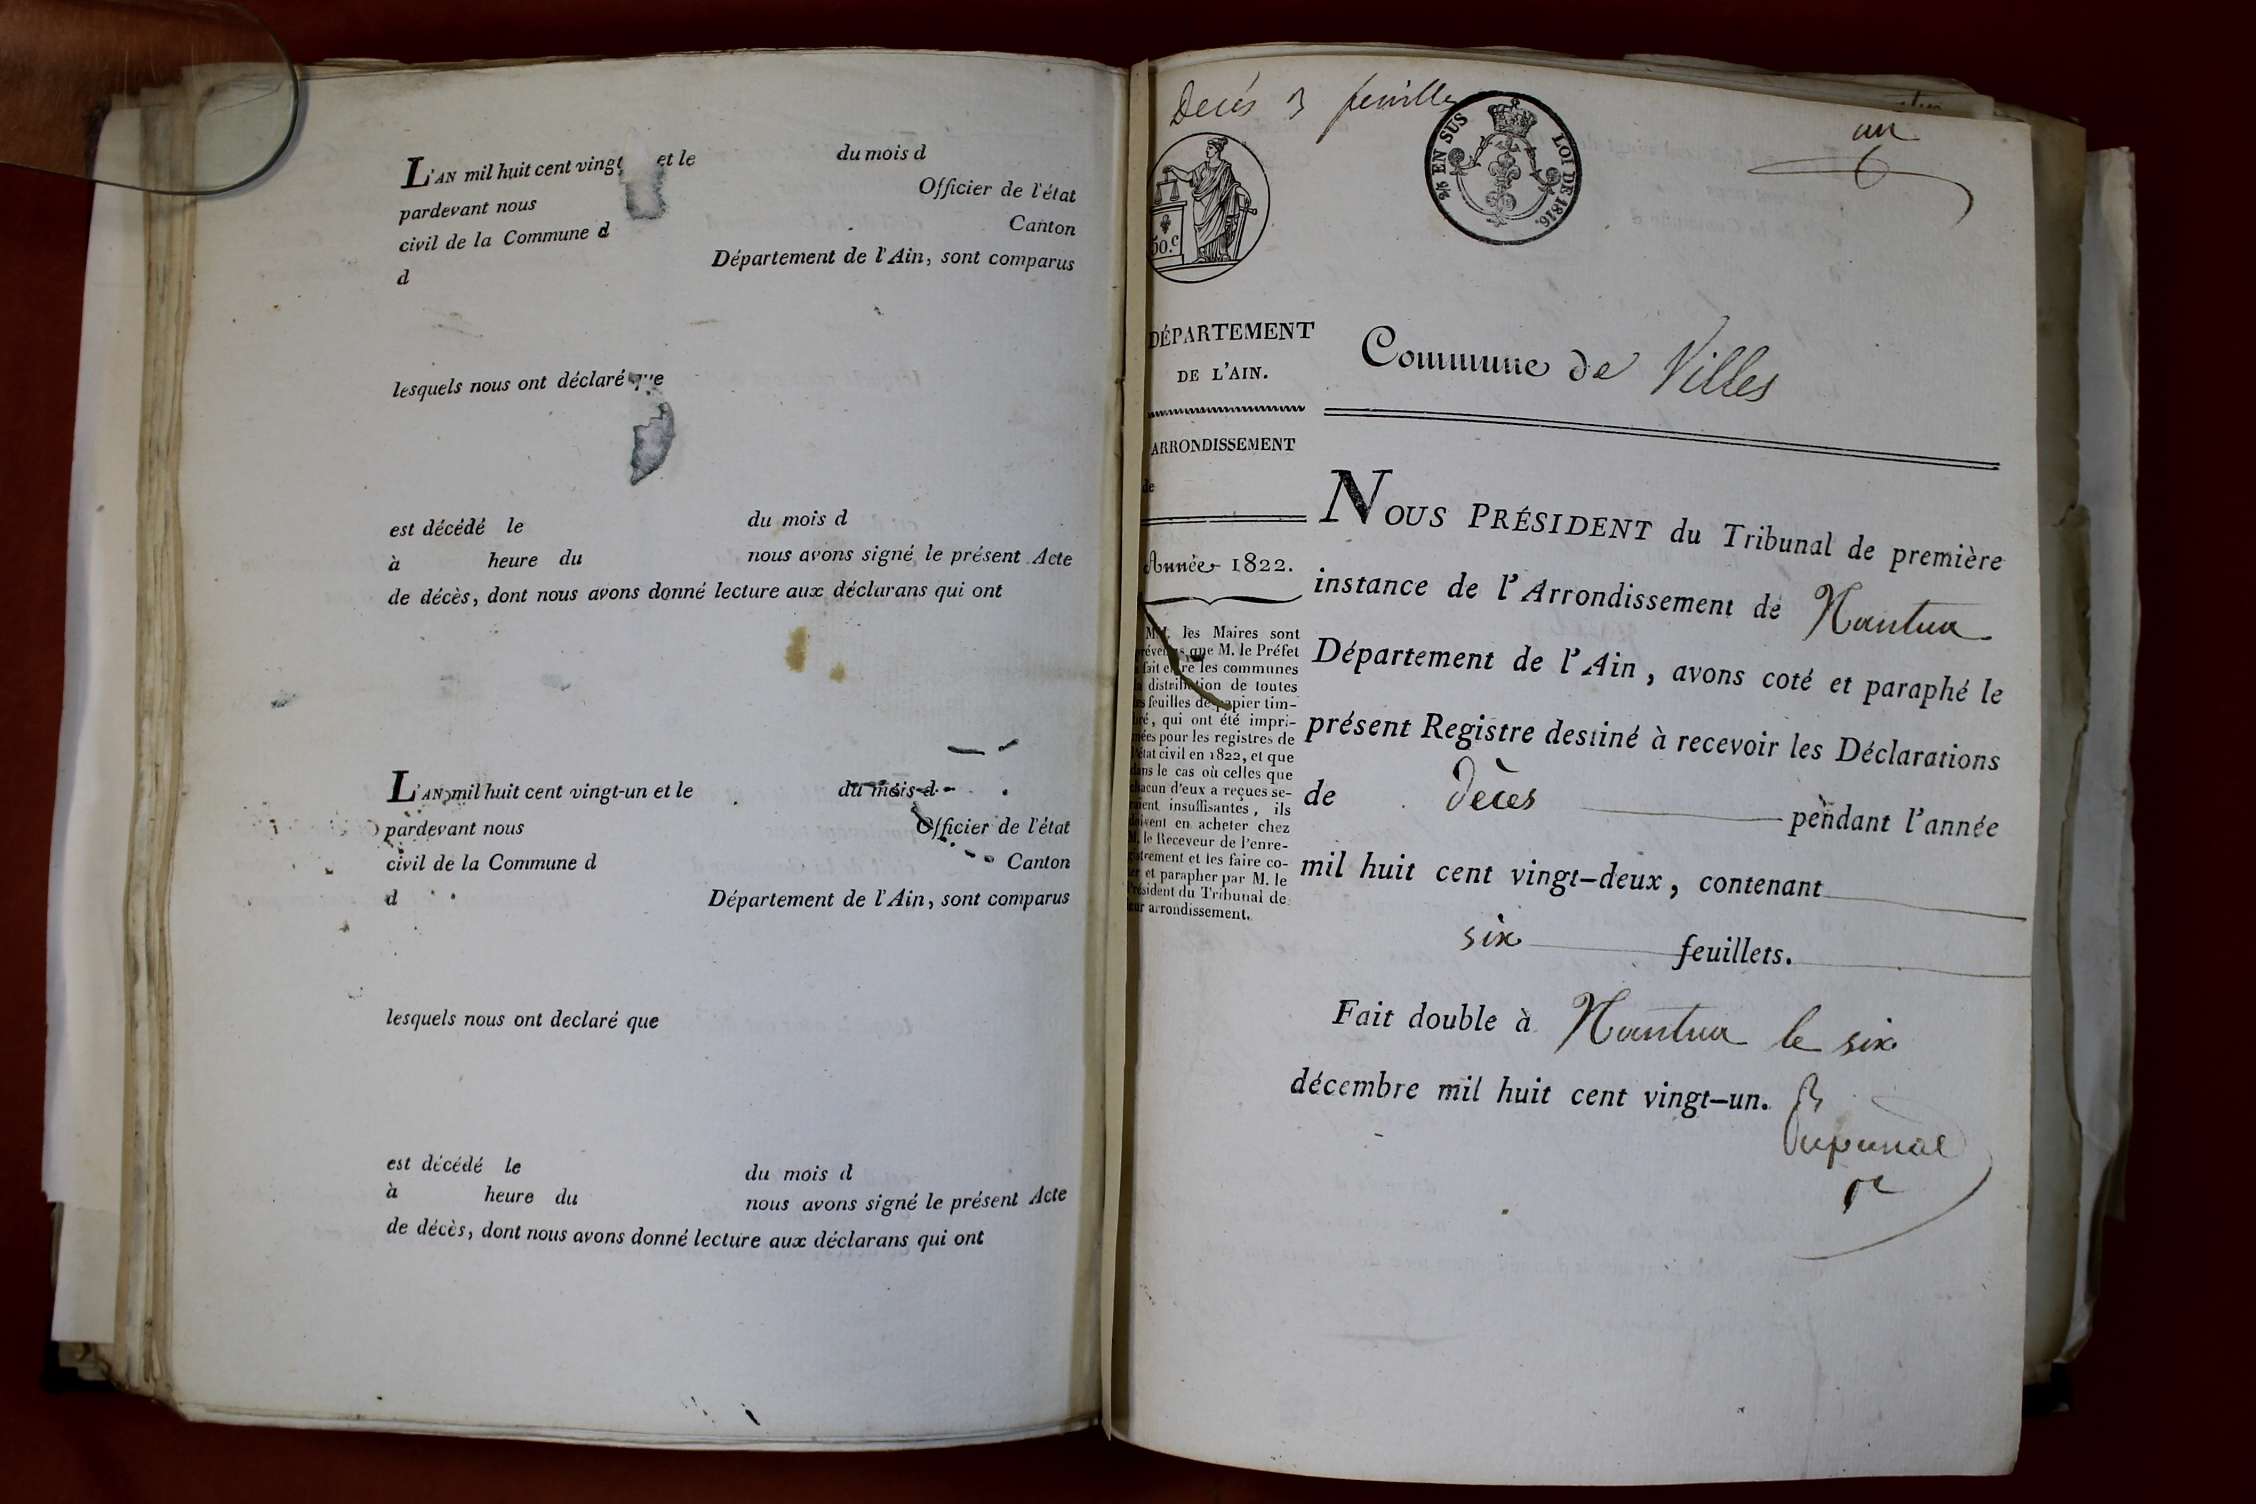 L'AN mil huit cent vingt et le du mois d
pardevant nous Officier de l'état
civil de la Commune d Canton
d Département de l'Ain, sont comparus
lesquels nous ont déclaré que
est décédé le du mois d
à heure du nous avons signé le présent Acte
de décès, dont nous avons donné lecture aux déclarans qui ont
L'AN mil huit cent vingt-un et le du mois d
pardevant nous Officier de l'état
civil de la Commune d Canton
d Département de l'Ain, sont comparus
lesquels nous ont declaré que
est décédé le du mois d
à heure du nous avons signé le présent Acte
de décès, dont nous avons donné lecture aux déclarans qui ont
Decés 3 feuilles
un
EN SUS LOI DE 1816.
50.c
DÉPARTEMENT
DE L'AIN.
ARRONDISSEMENT
de
Année 1822.
MM. les Maires sont
prévenus que M. le Préfet
a fait entre les communes
la distribution de toutes
les feuilles de papier tim-
bré, qui ont été impri-
mées pour les registres de
l'état civil en 1822, et que
dans le cas où celles que
chacun d'eux a reçues se-
raient insuffisantes, ils
doivent en acheter chez
M. le Receveur de l'enre-
gistrement et les faire co-
ter et parapher par M. le
Président du Tribunal de
leur arrondissement.
Commune de Villes
NOUS PRÉSIDENT du Tribunal de première
instance de l'Arrondissement de Nantua
Département de l'Ain, avons coté et paraphé le
présent Registre destiné à recevoir les Déclarations
de Décès pendant l'année
mil huit cent vingt-deux, contenant
six feuillets.
Fait double à Nantua le six
décembre mil huit cent vingt-un.